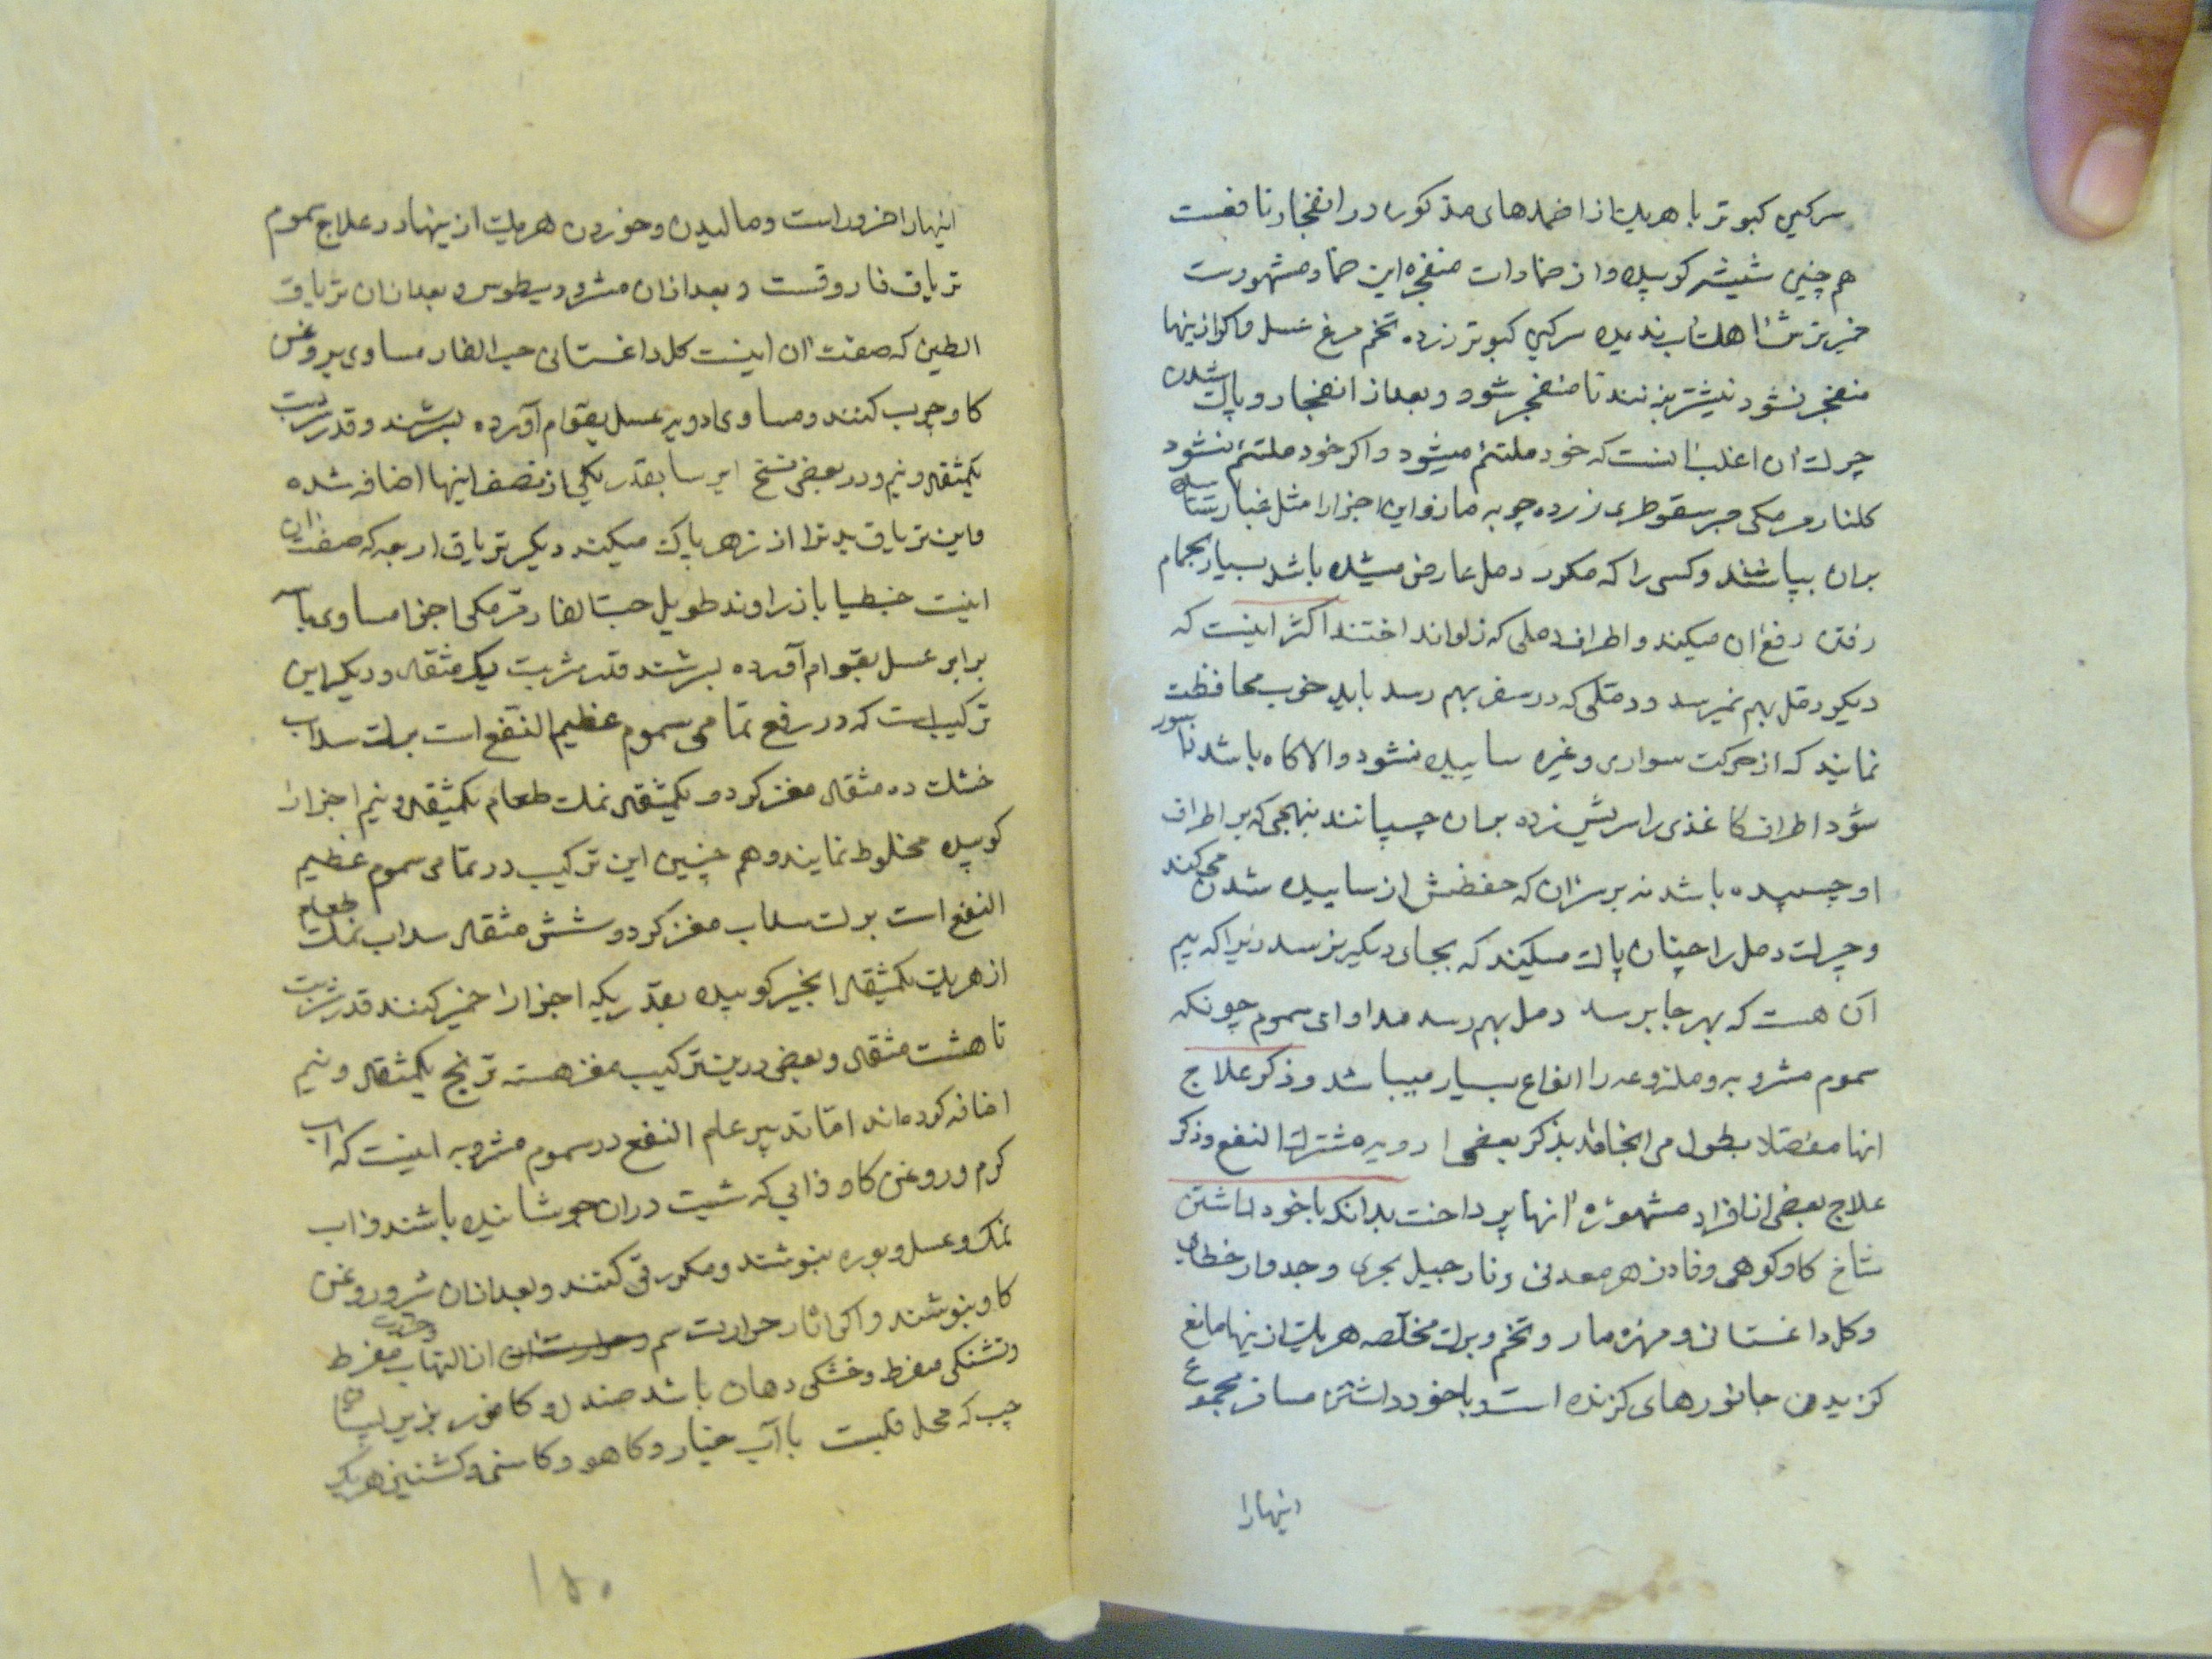 سرکین کبوتر با هریک از اضمدهای مذکوره در انفجار نافعست
هم چنین شیشهٔ کوبیده و از ضمادات منفجره این ضماد مشهورست
خمیر ترش اهک اب ندیده سرکین کبوتر زرده تخم مرغ عسل و اکر ازینها
منفجر نشود نیشتر بزنند تا منفجر شود و بعد از انفجار و پاک شدن
چرک ان اغلب انست که خود ملتئم میشود و اکر خود ملتئم نشود
کلنار مر مکی صبر سقوطری زرده چوبه مازو این اجزا را مثل غبار ساییده
بران بپاشند و کسی را که مکرر دمل عارض میشده باشد بسیار بحمام
رفتن رفع ان میکند و اطراف دملی که زلو انداختند اکثر اینست که
دیکر دمل بهم نمیرسد و دملی که در سفر بهم رسد باید خوب محافظت
نمایند که از حرکت سواری و غیره ساییده نشود و الا کاه باشد ناسور
شود اطراف کاغذی را سریش زده بران چسپانند بنهجی که بر اطراف
او چسپیده باشد نه بر سر ان که حفظش از ساییده شدن می کند
و چرک دمل را چنان پاک میکنند که بجای دیکر نرسد زیرا که بیم
آن هست که بهر جا برسد دمل بهم رسد مداوای سموم چونکه
سموم مشروبه و ملذوعه را انواع بسیار میباشد و ذکر علاج
انها مفصلا بطول می انجامد بذکر بعضی ادویه مشترک النفع و ذکر
علاج بعضی از افراد مشهوره انها پرداخت بدانکه با خود داشتن
شاخ کاو کوهی و فادزهر معدنی و نارجیل بحری و جدوار خطایی
و کل داغستانی و مهره مار و تخم و برک مخلصه هریک ازینها مانع
کزیدن جانورهای کزنده است و با خود داشتن مسافر مجموع
اینها را
اینها را ضرور است و مالیدن و خوردن هریک ازینها در علاج سموم
تریاق فاروقست و بعد از ان مثرودیطوس و بعد از ان تریاق
الطین که صفت ان اینست کل داغستانی حب الغار مساوی بروغن
کاو چرب کنند و مساوی ادویه عسل بقوام آورده بسرشند و قدر شربت
یکمثقال و نیم و در بعضی نسخ ایرسا بقدر یکی از نصف اینها اضافه شده
و این تریاق بدنرا از زهر پاک میکند دیکر تریاق اربعه که صفت ان
اینست جنطیانا زراوند طویل حب الغار مر مکی اجزا مساوی با سه
برابر عسل بقوام آورده بسرشند قدر شربت یک مثقال و دیکر این
ترکیب است که در رفع تمامی سموم عظیم النفع است برک سداب
خشک ده مثقال مغز کردو یکمثقال نمک طعام یکمثقال و نیم اجزا را
کوبیده مخلوط نمایند و هم چنین این ترکیب در تمامی سموم عظیم
النفع است برک سداب مغز کردو شش مثقال سداب نمک طعام
از هریک یکمثقال انجیر کوبیده بقدریکه اجزا را خمیر کنند قدر شربت
تا هشت مثقال و بعضی درین ترکیب مغز هسته ترنج یکمثقال و نیم
اضافه کرده اند اما تدبیر عام النفع در سموم مشروبه اینست که اب
کرم و روغن کاو و ابی که شبت دران جوشانیده باشند و اب
نمک و عسل و بوره بنوشند و مکرر قی کنند و بعد از ان شیر و روغن
کاو بنوشند و اکر اثار حرارت سم و حدت ان از التهاب مفرط
و تشنکی مفرط و خشکی دهان باشد صندل و کافور بزیر پستان
چپ که محل قلبست با آب خیار و کاهو و کاسنی و کشنیز هریک
۱۵۰